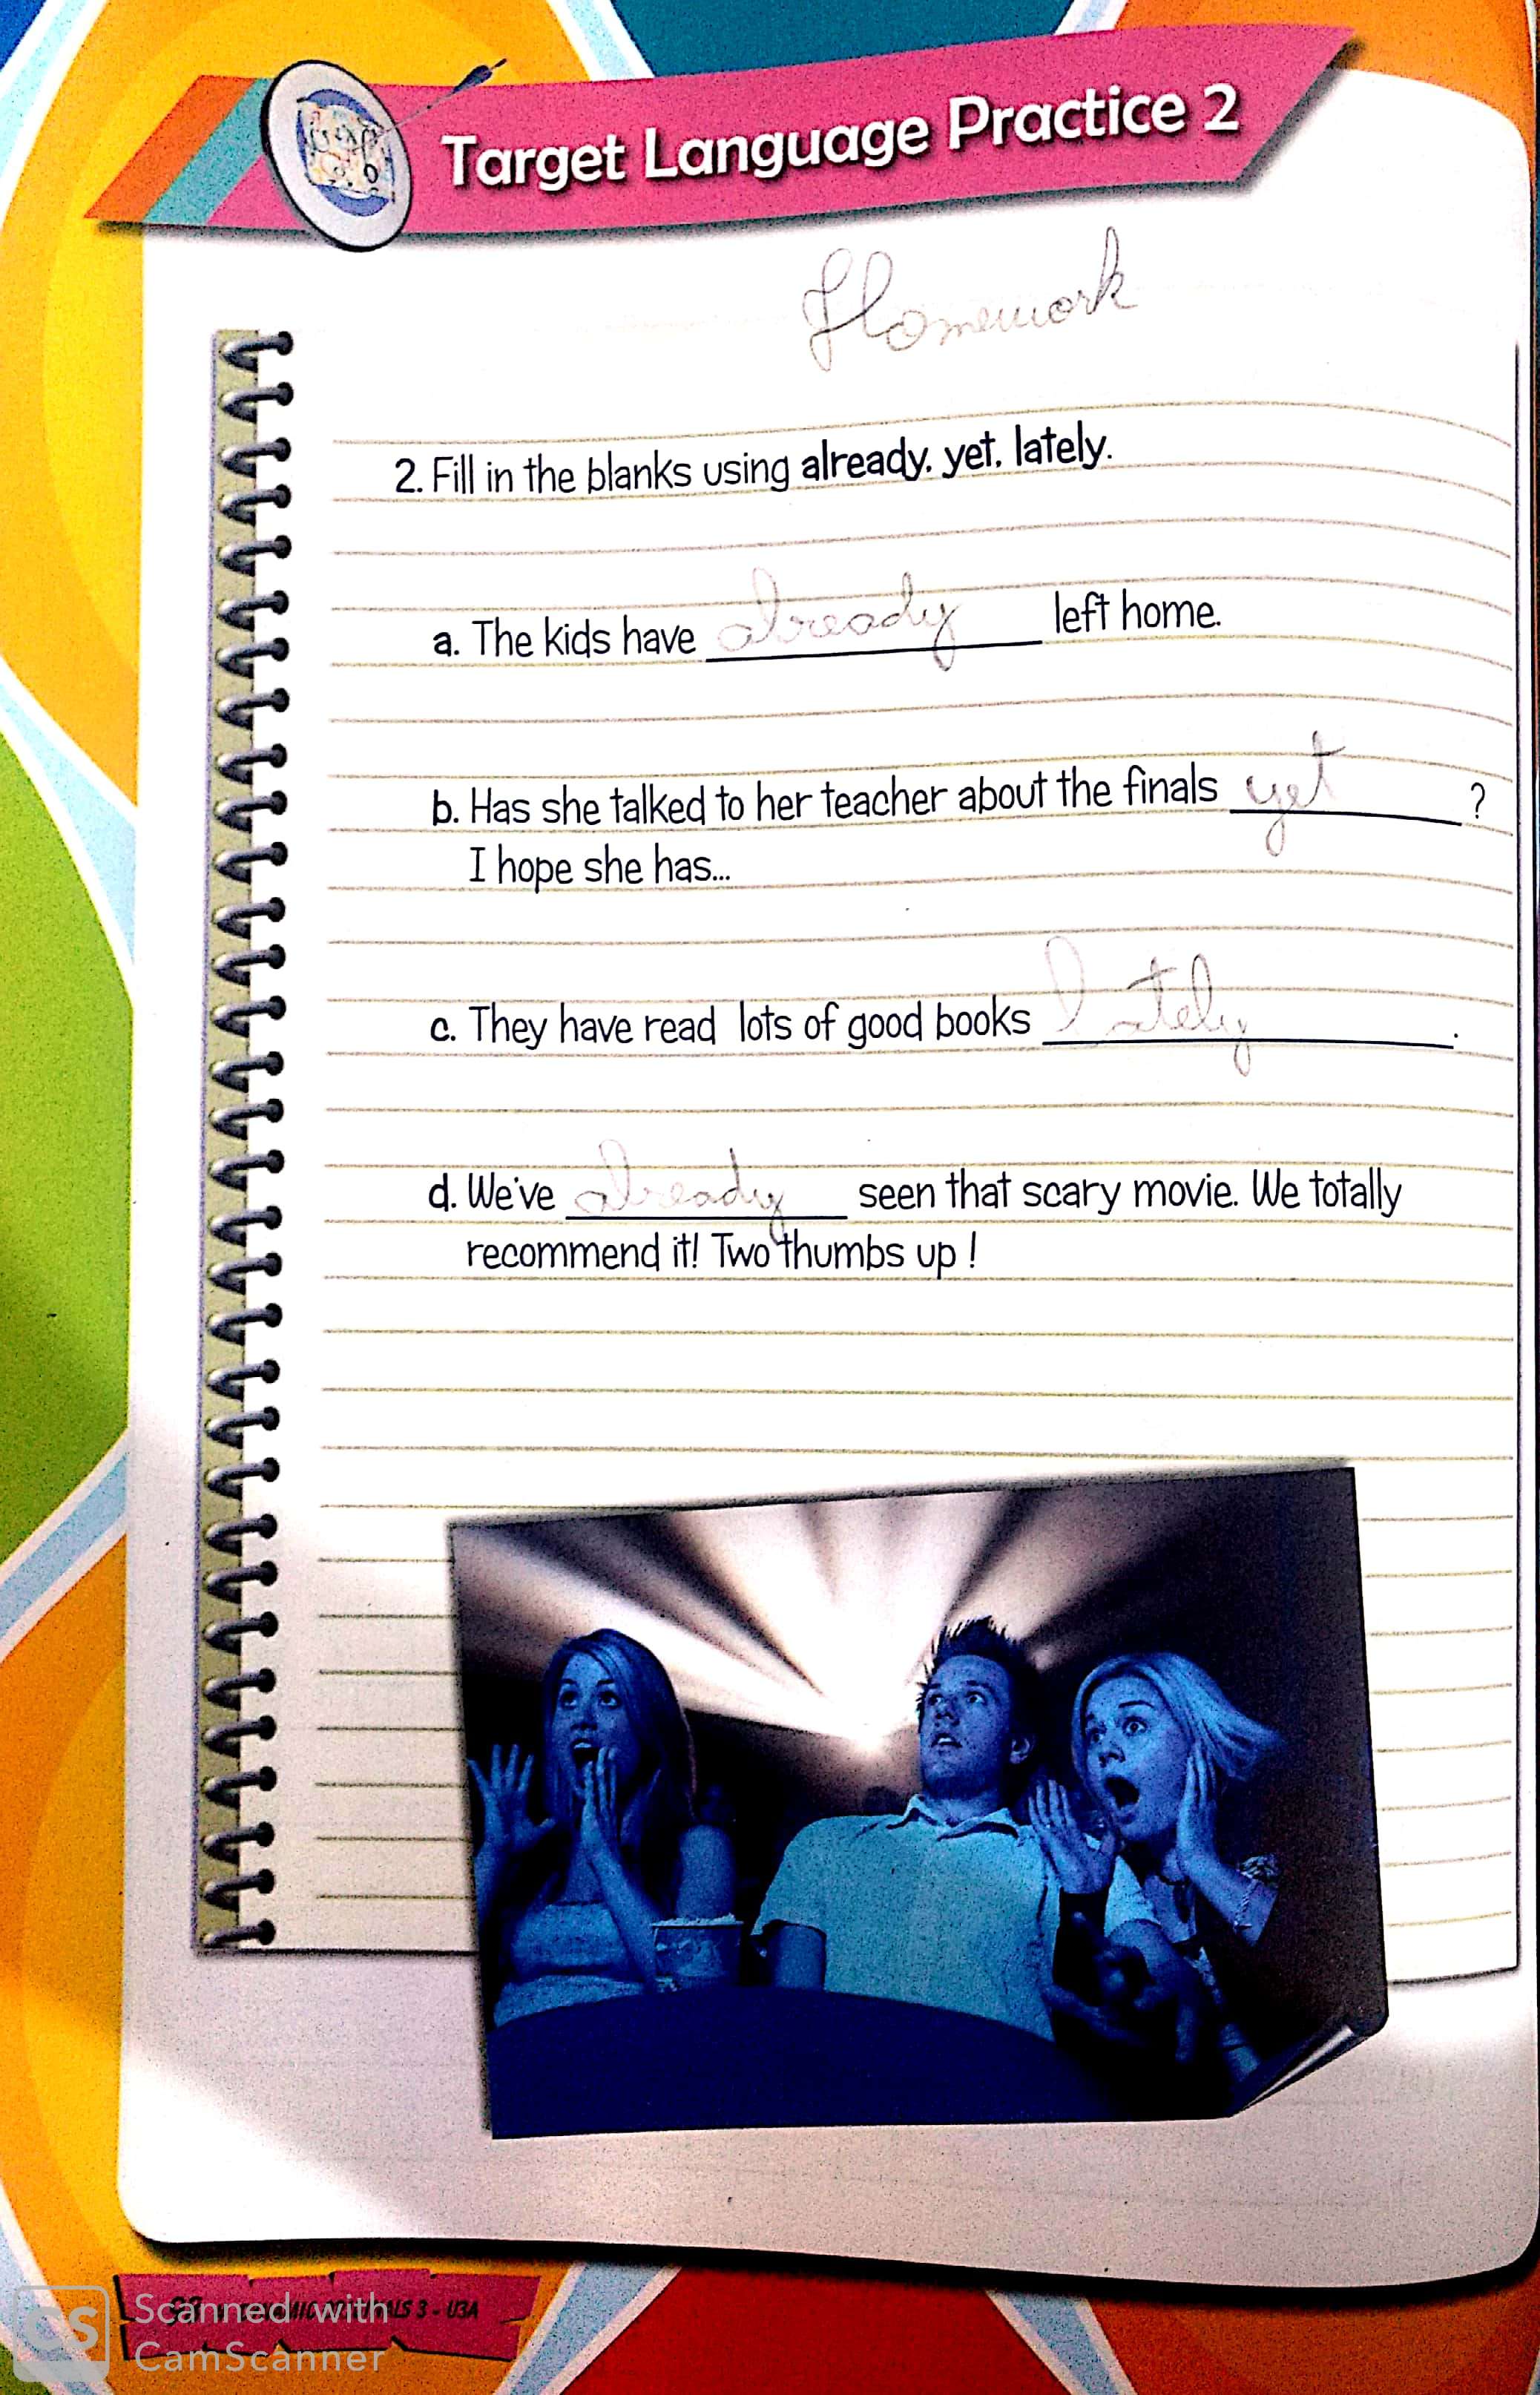 Target Language Practice 2
Homework
2. Fill in the blanks using already, yet, lately.
a. The kids have already left home.
b. Has she talked to her teacher about the finals yet ?
I hope she has...
c. They have read lots of good books lately .
d. We've already seen that scary movie. We totally
recommend it! Two thumbs up !
ALS 3 - U3A
CS Scanned with
CamScanner